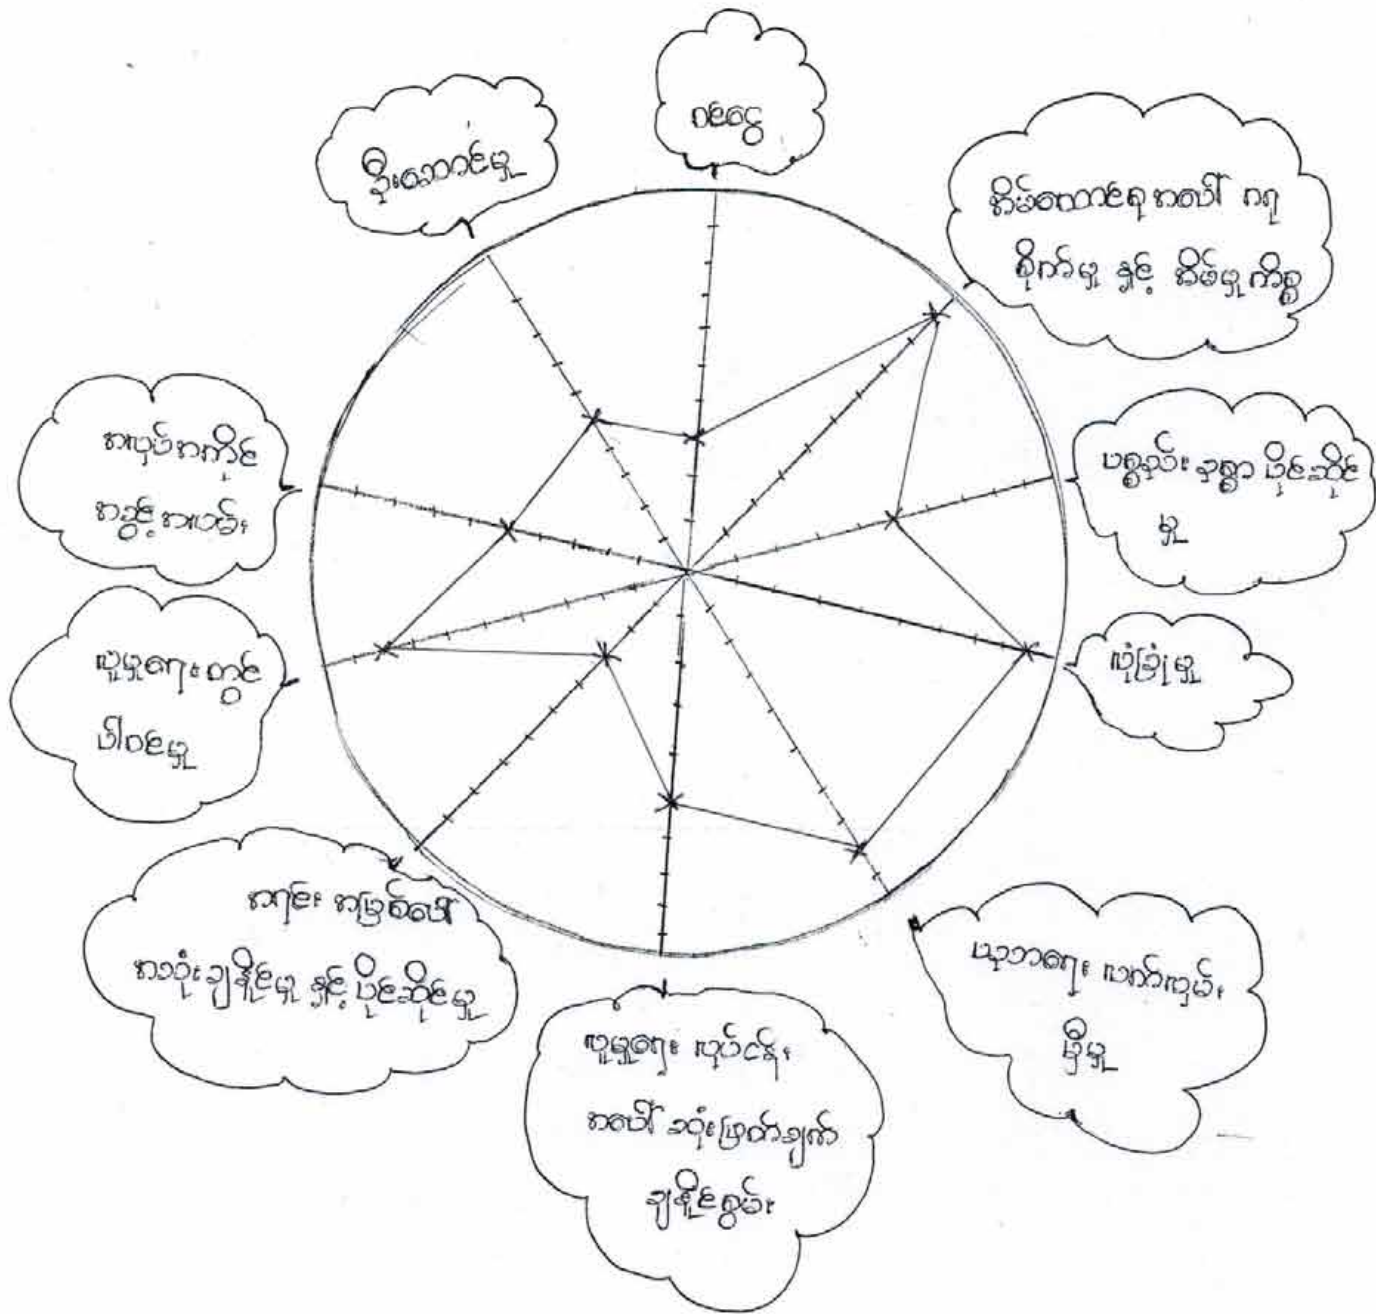 ဝင်ငွေ
အိမ်ထောင်ရေးအပေါ် ဂရု
စိုက်မှု နှင့် အိမ်မှုကိစ္စ
ပစ္စည်း ဥစ္စာ ပိုင်ဆိုင်
မှု
လုံခြုံမှု
ပညာရေး လက်လှမ်း
မှီမှု
လူမှုရေး လုပ်ငန်း
အပေါ် ဆုံးဖြတ်ချက်
ချနိုင်စွမ်း
အရင်း အမြစ်ပေါ်
အသုံးချနိုင်မှု နှင့် ပိုင်ဆိုင်မှု
လူမှုရေးတွင်
ပါဝင်မှု
အလုပ်အကိုင်
အခွင့်အလမ်း
ဦးဆောင်မှု